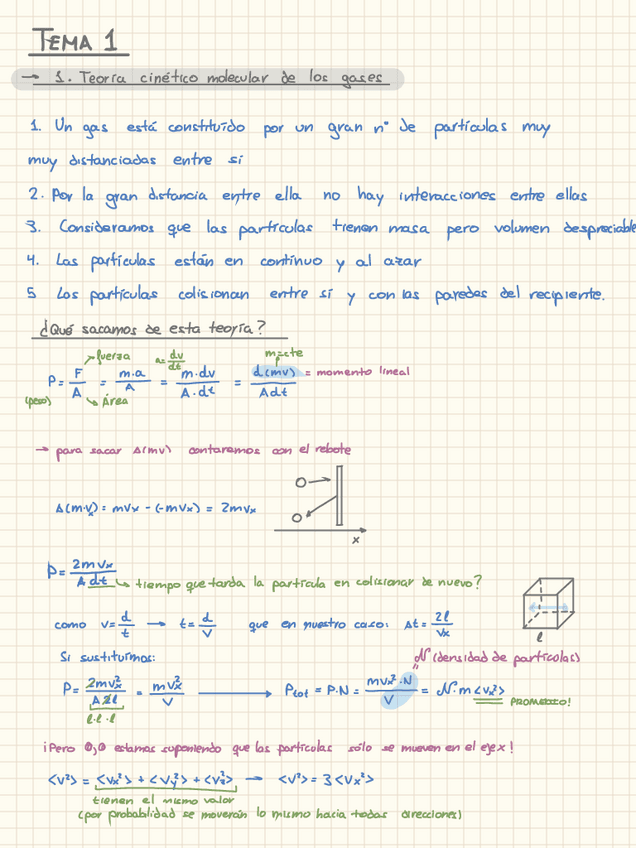 TEMA 1
→ 1. Teoría cinético molecular de los gases
1. Un gas está constituído por un gran nº de partículas muy
muy distanciadas entre sí
2. Por la gran distancia entre ella no hay interacciones entre ellas
3. Consideramos que las partículas tienen masa pero volumen despreciable
4. Las partículas están en contínuo y al azar
5 Las partículas colisionan entre sí y con las paredes del recipiente.
¿Qué sacamos de esta teoría?
fuerza a = dv/dt m=cte
P = F/A = m·a/A = m·dv/A·dt = d(mv)/A dt = momento lineal
(peso) Área
→ para sacar Δ(mv) contaremos con el rebote
Δ(m·vx) = mvx - (-mvx) = 2mvx
x
P = 2mvx/A dt tiempo que tarda la partícula en colisionar de nuevo?
como v = d/t → t = d/v que en nuestro caso: Δt = 2l/vx
l
Si sustituimos: N (densidad de partículas)
P = 2mvx²/A·2l = mvx²/V → Ptot = P·N = mvx²·N/V = N·m<vx²> PROMEDIO!
l·l·l
¡Pero 0,0 estamos suponiendo que las partículas sólo se mueven en el eje x!
<v²> = <vx²> + <vy²> + <vz²> → <v²> = 3<vx²>
tienen el mismo valor
(por probabilidad se moverán lo mismo hacia todas direcciones)